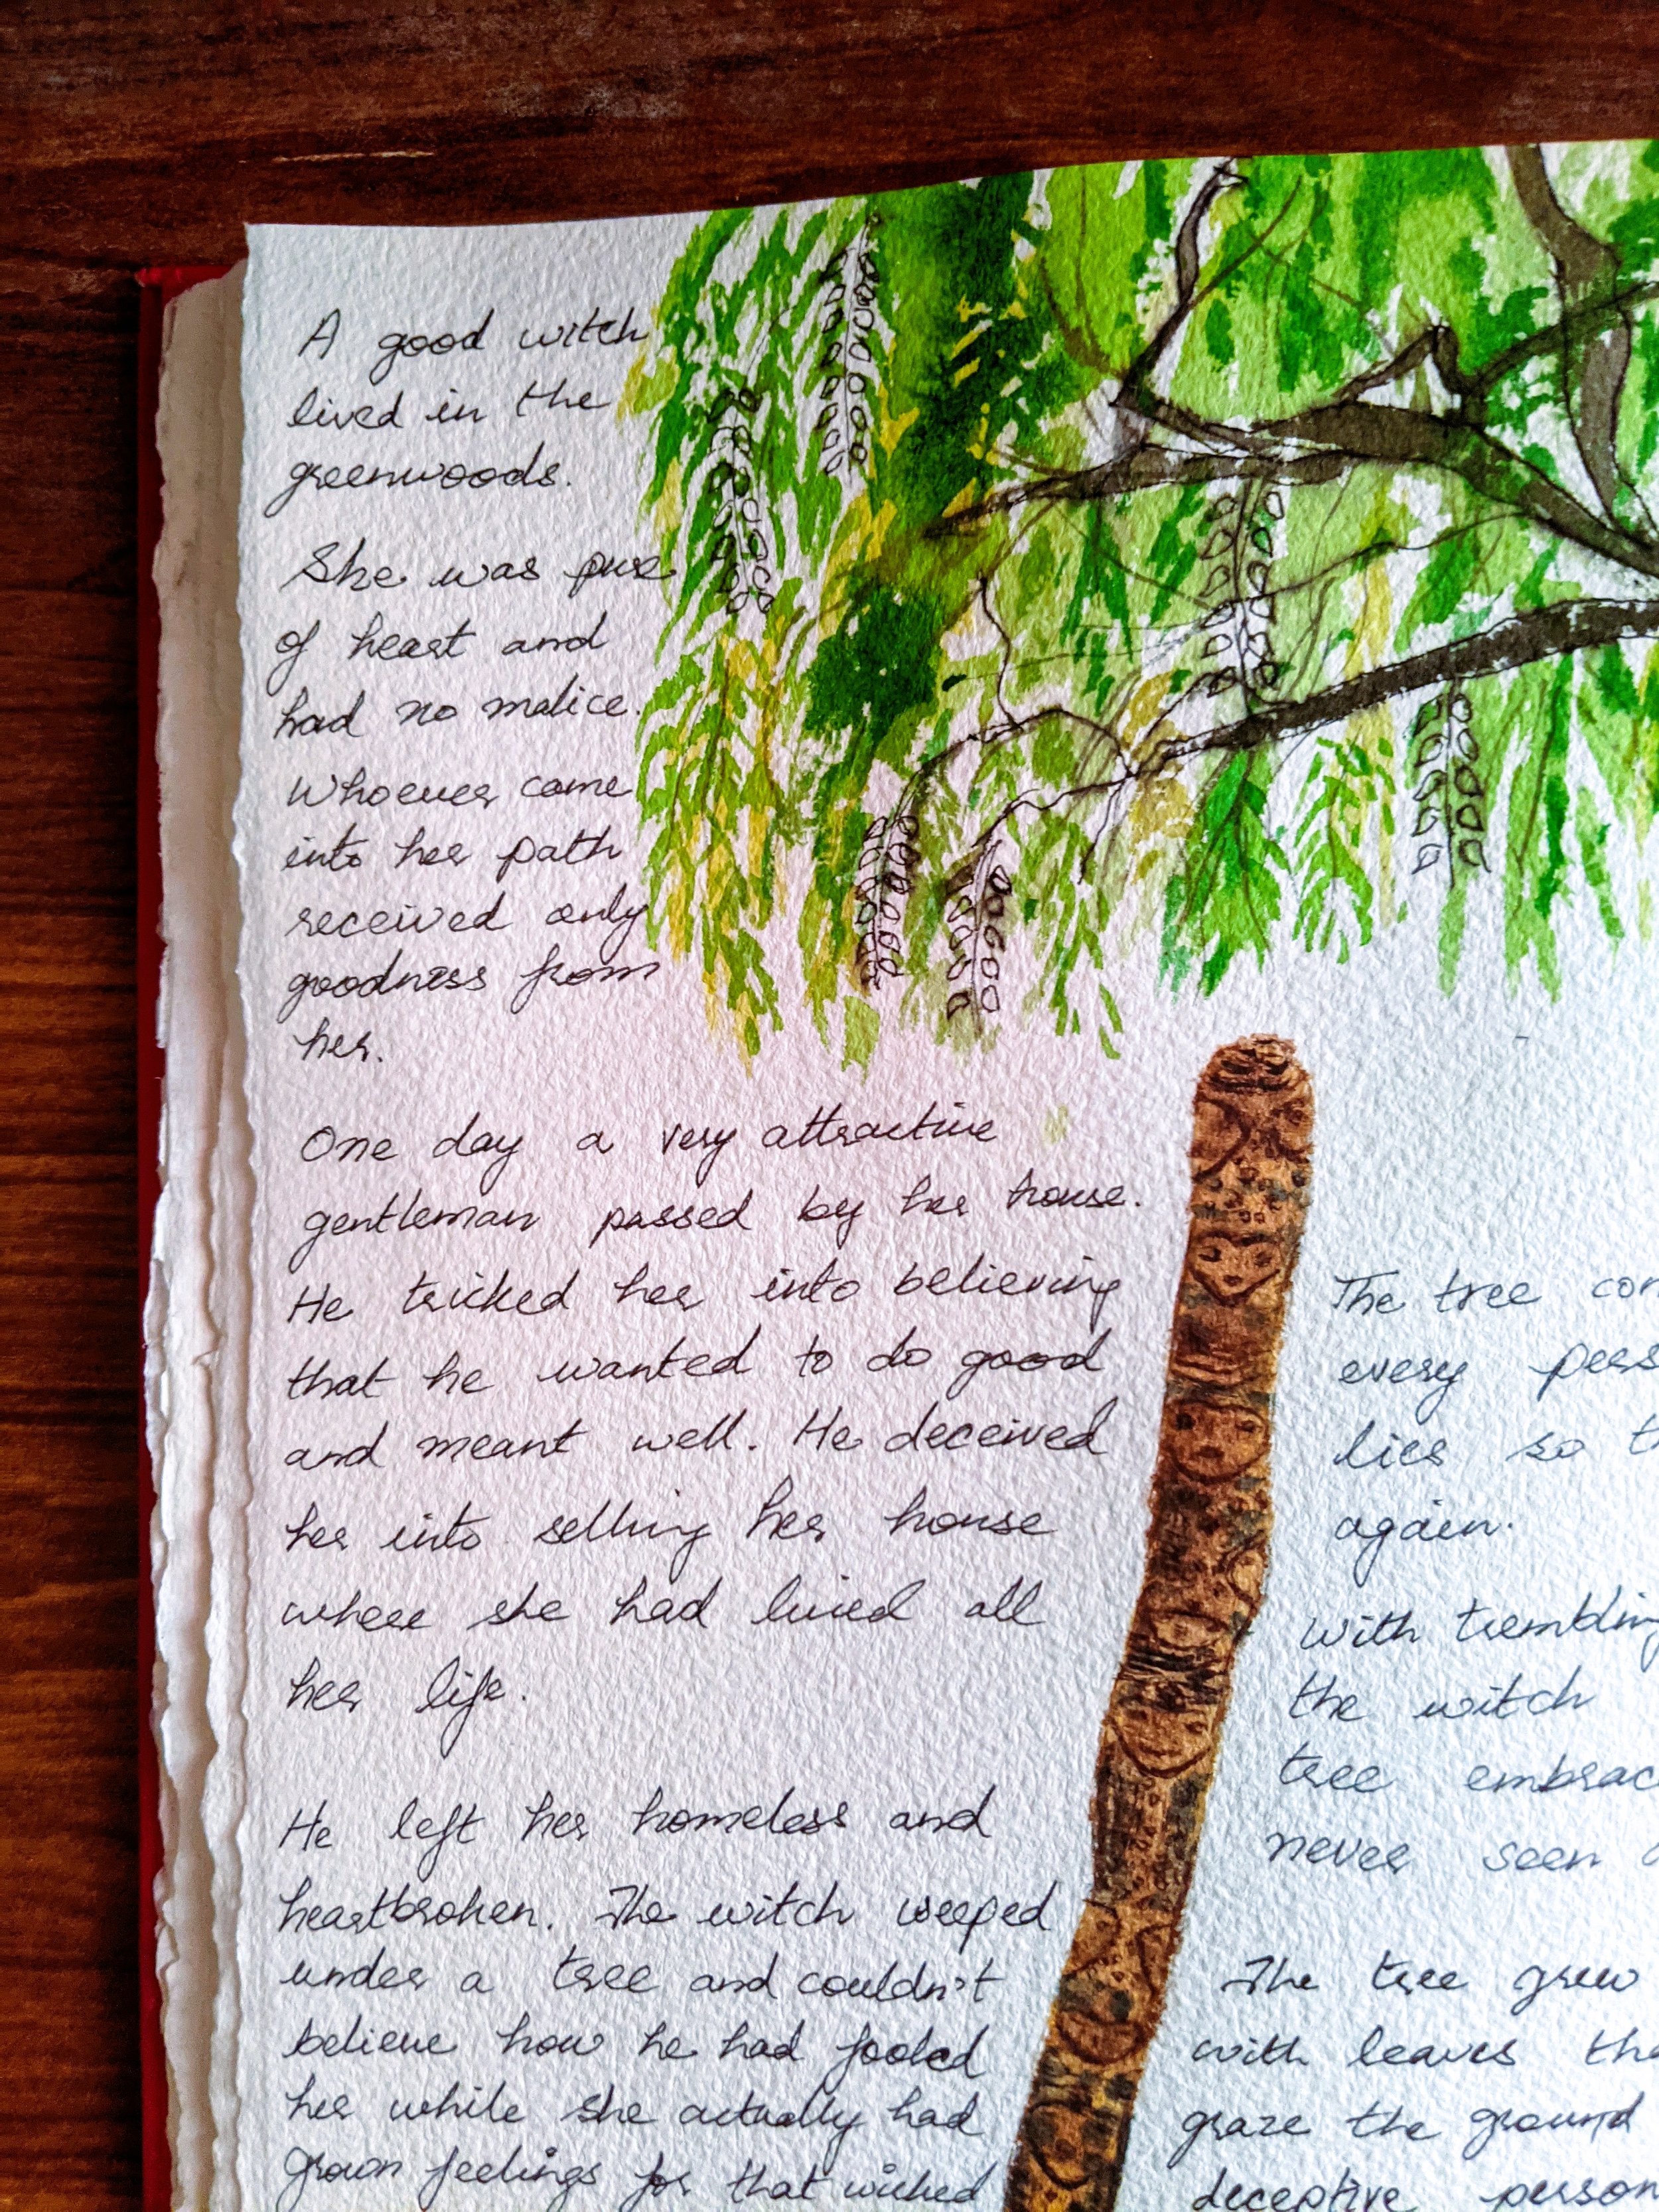 A good witch
lived in the
greenwoods.
She was pure
of heart and
had no malice.
Whoever came
into her path
received only
goodness from
her.
One day a very attractive
gentleman passed by her house.
He tricked her into believing
that he wanted to do good
and meant well. He deceived
her into selling her house
where she had lived all
her life.
He left her homeless and
heartbroken. The witch weeped
under a tree and couldn't
believe how he had fooled
her while she actually had
grown feelings for that wicked
The tree con
every pers
lies so th
again.
With trembling
the witch
tree embrac
never seen
The tree grew
with leaves tha
graze the ground
deceptive person